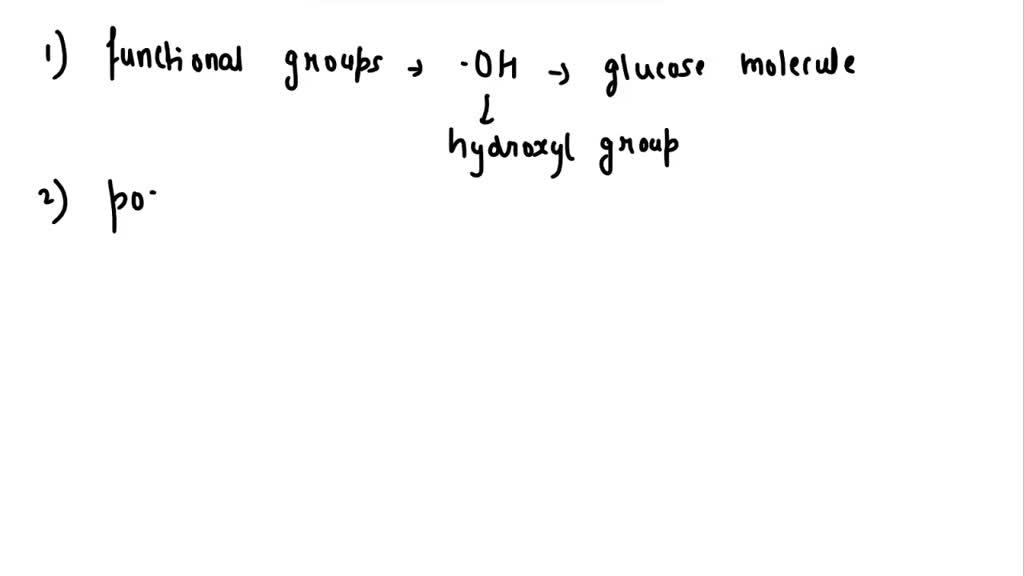 1) functional groups → ·OH → glucose molecule
↓
hydroxyl group
2) po